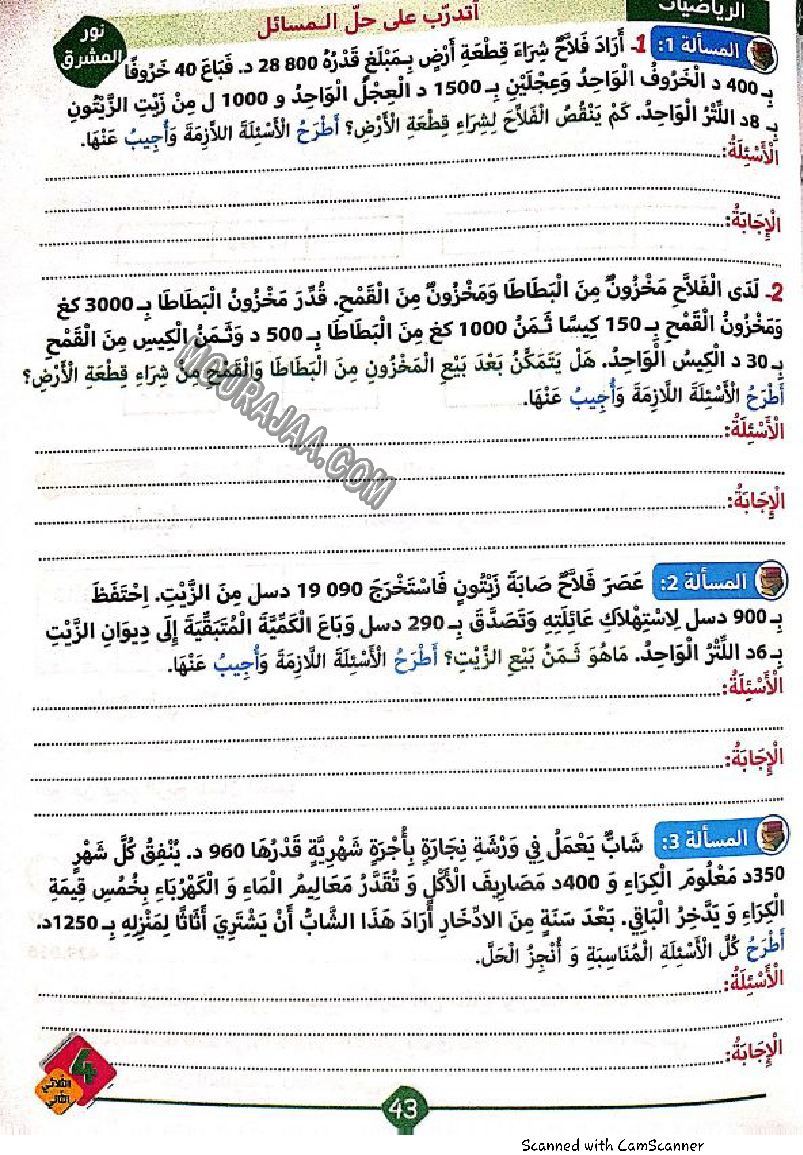 الرياضيات
أتدرّب على حلّ المسائل
نور
المشرق
المسألة 1: 1- أَرَادَ فَلاَّحٌ شِرَاءَ قِطْعَةِ أَرْضٍ بِمَبْلَغٍ قَدْرُهُ 800 28 د. فَبَاعَ 40 خَرُوفًا
بِـ 400 د الْخَرُوفُ الْوَاحِدُ وَعِجْلَيْنِ بِـ 1500 د الْعِجْلُ الْوَاحِدُ و 1000 ل مِنْ زَيْتِ الزَّيْتُونِ
بِـ 8د اللِّتْرُ الْوَاحِدُ. كَمْ يَنْقُصُ الْفَلاَّحَ لِشِرَاءِ قِطْعَةِ الْأَرْضِ؟ أَطْرَحُ الْأَسْئِلَةَ اللاَّزِمَةَ وَأُجِيبُ عَنْهَا.
الْأَسْئِلَةُ:
الْإِجَابَةُ:
2- لَدَى الْفَلاَّحِ مَخْزُونٌ مِنَ الْبَطَاطَا وَمَخْزُونٌ مِنَ الْقَمْحِ. قُدِّرَ مَخْزُونُ الْبَطَاطَا بِـ 3000 كغ
وَمَخْزُونُ الْقَمْحِ بِـ 150 كِيسًا ثَمَنُ 1000 كغ مِنَ الْبَطَاطَا بِـ 500 د وَثَمَنُ الْكِيسِ مِنَ الْقَمْحِ
بِـ 30 د الْكِيسُ الْوَاحِدُ. هَلْ يَتَمَكَّنُ بَعْدَ بَيْعِ الْمَخْزُونِ مِنَ الْبَطَاطَا وَالْقَمْحِ مِنْ شِرَاءِ قِطْعَةِ الْأَرْضِ؟
أَطْرَحُ الْأَسْئِلَةَ اللَّازِمَةَ وَأُجِيبُ عَنْهَا.
الْأَسْئِلَةُ:
MOURAJAA.COM
الْإِجَابَةُ:
المسألة 2: عَصَرَ فَلاَّحٌ صَابَةَ زَيْتُونٍ فَاسْتَخْرَجَ 090 19 دسل مِنَ الزَّيْتِ. اِحْتَفَظَ
بِـ 900 دسل لِاسْتِهْلاَكِ عَائِلَتِهِ وَتَصَدَّقَ بِـ 290 دسل وَبَاعَ الْكَمِّيَّةَ الْمُتَبَقِّيَةَ إِلَى دِيوَانِ الزَّيْتِ
بِـ 6د اللِّتْرُ الْوَاحِدُ. مَاهُوَ ثَمَنُ بَيْعِ الزَّيْتِ؟ أَطْرَحُ الْأَسْئِلَةَ اللَّازِمَةَ وَأُجِيبُ عَنْهَا.
الْأَسْئِلَةُ:
الْإِجَابَةُ:
المسألة 3: شَابٌّ يَعْمَلُ فِي وَرْشَةِ نِجَارَةٍ بِأُجْرَةٍ شَهْرِيَّةٍ قَدْرُهَا 960 د. يُنْفِقُ كُلَّ شَهْرٍ
350د مَعْلُومَ الْكِرَاءِ وَ 400د مَصَارِيفَ الْأَكْلِ وَ تُقَدَّرُ مَعَالِيمُ الْمَاءِ وَ الْكَهْرُبَاءِ بِخُمُسِ قِيمَةِ
الْكِرَاءِ وَ يَدَّخِرُ الْبَاقِي. بَعْدَ سَنَةٍ مِنَ الادِّخَارِ أَرَادَ هَذَا الشَّابُّ أَنْ يَشْتَرِيَ أَثَاثًا لِمَنْزِلِهِ بِـ 1250د.
أَطْرَحُ كُلَّ الْأَسْئِلَةِ الْمُنَاسِبَةِ وَ أُنْجِزُ الْحَلَّ.
الْأَسْئِلَةُ:
الْإِجَابَةُ:
4
الثلاثي
الثاني
43
Scanned with CamScanner